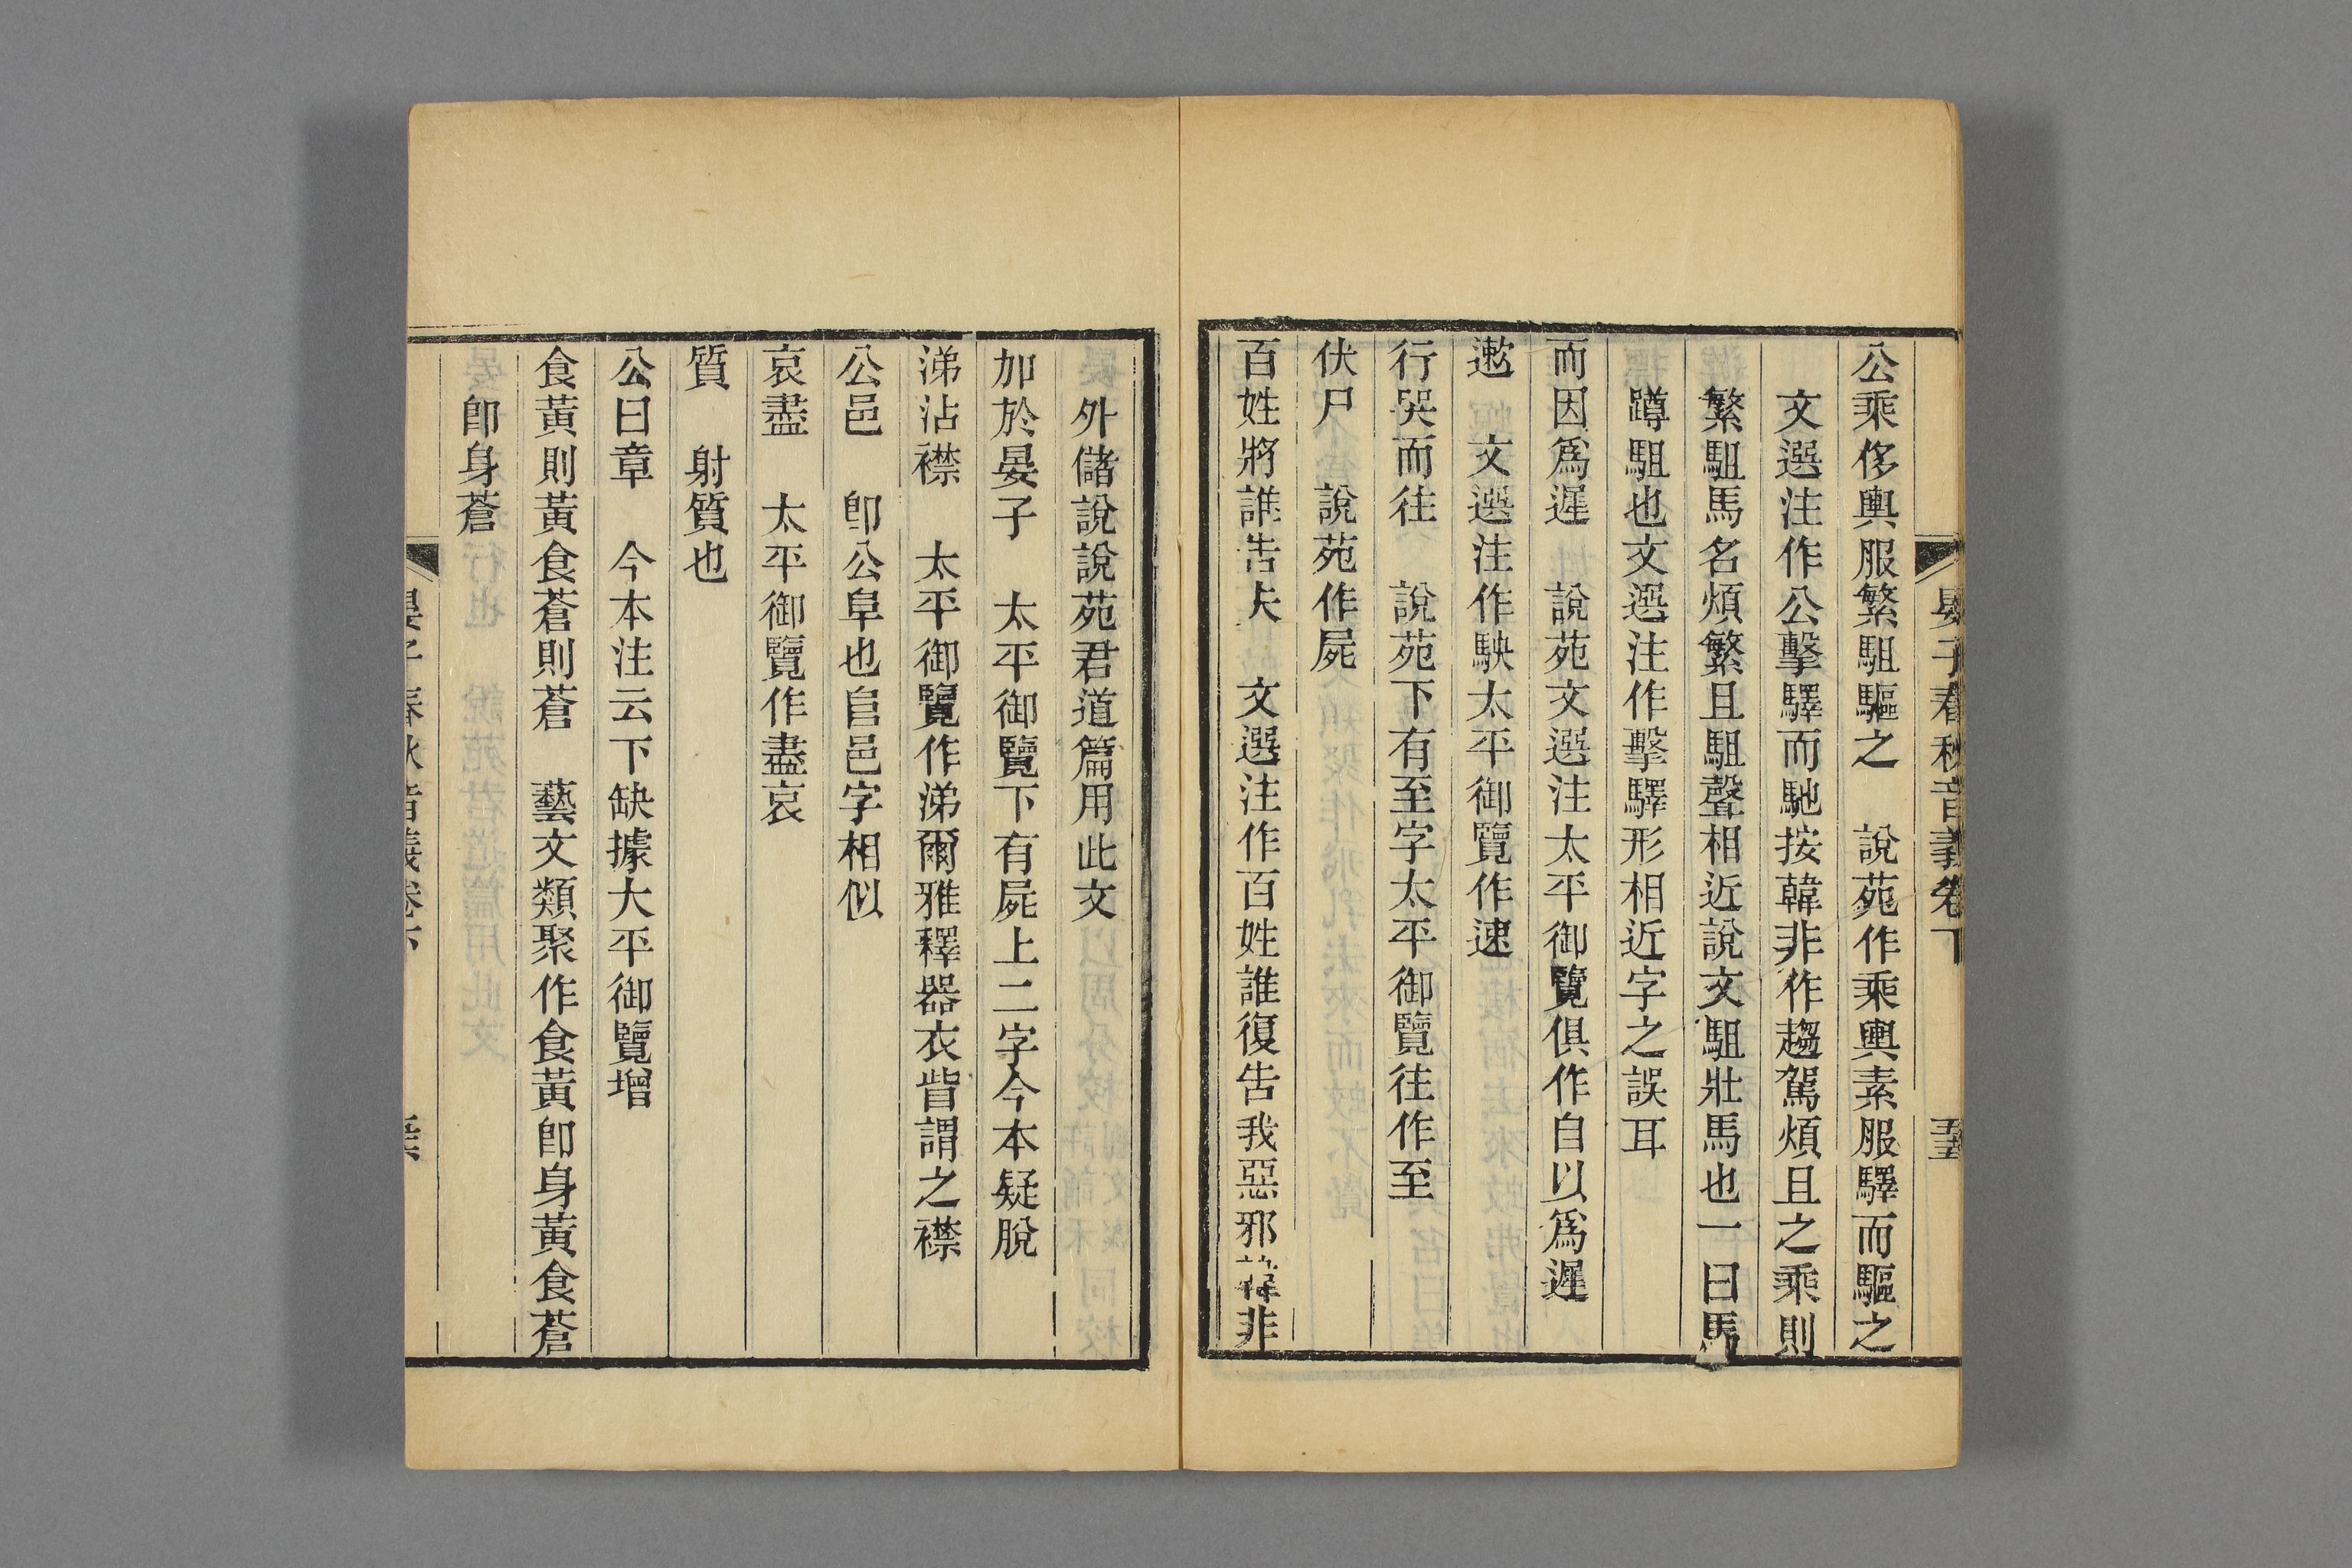 晏子春秋音義卷下
公乘侈輿服繁駔驅之　說苑作乘輿素服驛而驅之
文選注作公擊驛而馳按韓非作趨駕煩且之乘則
繁駔馬名煩繁且駔聲相近說文駔壯馬也一曰馬
蹲駔也文選注作擊驛形相近字之誤耳
而因爲遲　說苑文選注太平御覽俱作自以爲遲
遬　文選注作駚太平御覽作速
行哭而往　說苑下有至字太平御覽往作至
伏尸　說苑作屍
百姓將誰告夫　文選注作百姓誰復告我惡邪韓非
外儲說說苑君道篇用此文
加於晏子　太平御覽下有屍上二字今本疑脫
涕沾襟　太平御覽作涕爾雅釋器衣眥謂之襟
公邑　卽公阜也𨸏邑字相似
哀盡　太平御覽作盡哀
質　射質也
公曰章　今本注云下缺據大平御覽增
食黃則黃食蒼則蒼　藝文類聚作食黃卽身黃食蒼
卽身蒼